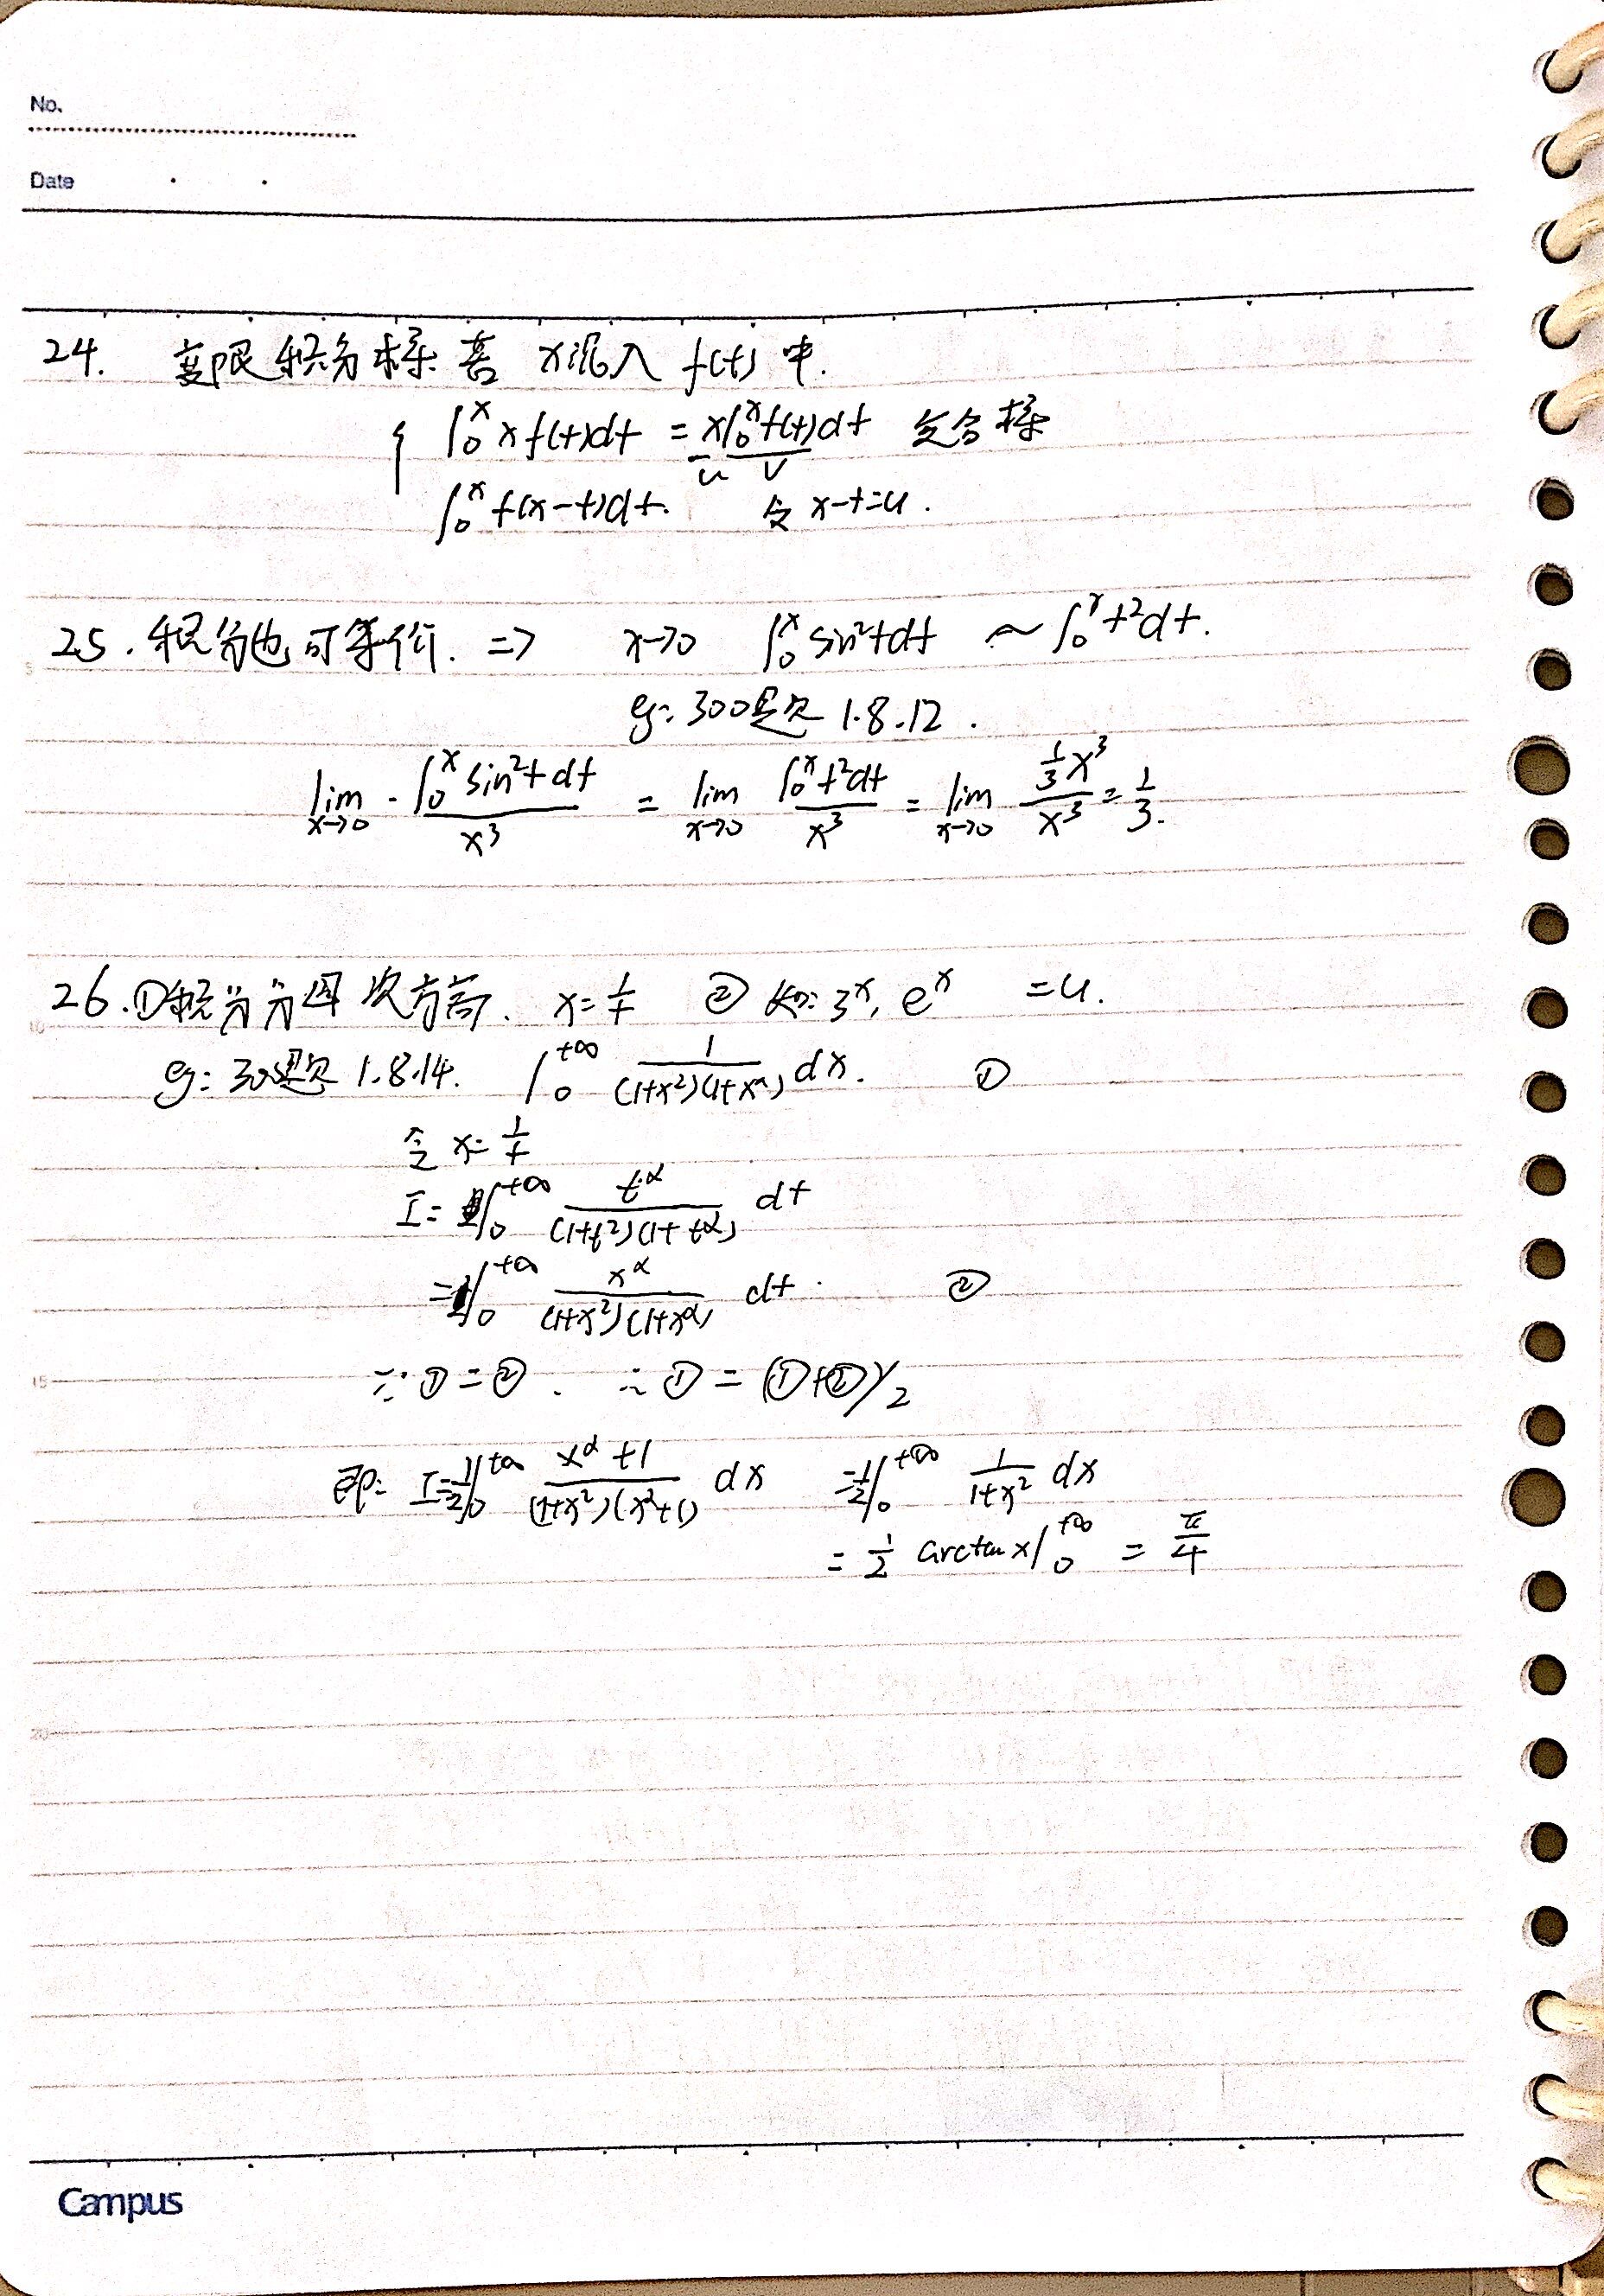 No.
Date
24. 变限积分求导: 若 x混入 f(t) 中.
{ ∫₀ˣ x f(t)dt = x∫₀ˣ f(t)dt 复合求导
u v
∫₀ˣ f(x-t)dt. 令 x-t=u.
25. 积分也可等价. => x→0 ∫₀ˣ sin²t dt ~ ∫₀ˣ t²dt.
eg: 300题 1.8.12.
lim x→0 ∫₀ˣ sin²t dt / x³ = lim x→0 ∫₀ˣ t²dt / x³ = lim x→0 (1/3)x³ / x³ = 1/3.
26. ①积分分母次方高. x=1/t ② 如: 3ˣ, eˣ =u.
eg: 300题 1.8.14. ∫₀^{+∞} 1/((1+x²)(1+x^α)) dx. ①
令 x=1/t
I= ∫₀^{+∞} t^α/((1+t²)(1+t^α)) dt
= ∫₀^{+∞} x^α/((1+x²)(1+x^α)) dt. ②
∵ ①=②. ∴ ① = (①+②)/2
即: I=1/2 ∫₀^{+∞} (x^α+1)/((1+x²)(x^α+1)) dx =1/2 ∫₀^{+∞} 1/(1+x²) dx
= 1/2 arctan x |₀^{+∞} = π/4
5
10
15
20
Campus